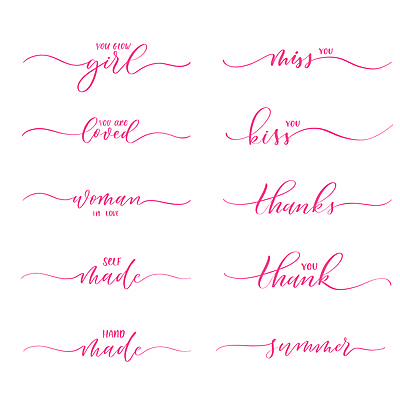 YOU GLOW
girl
YOU ARE
loved
woman
IN LOVE
SELF
made
HAND
made
miss YOU
kiss YOU
thanks
YOU
thank
summer